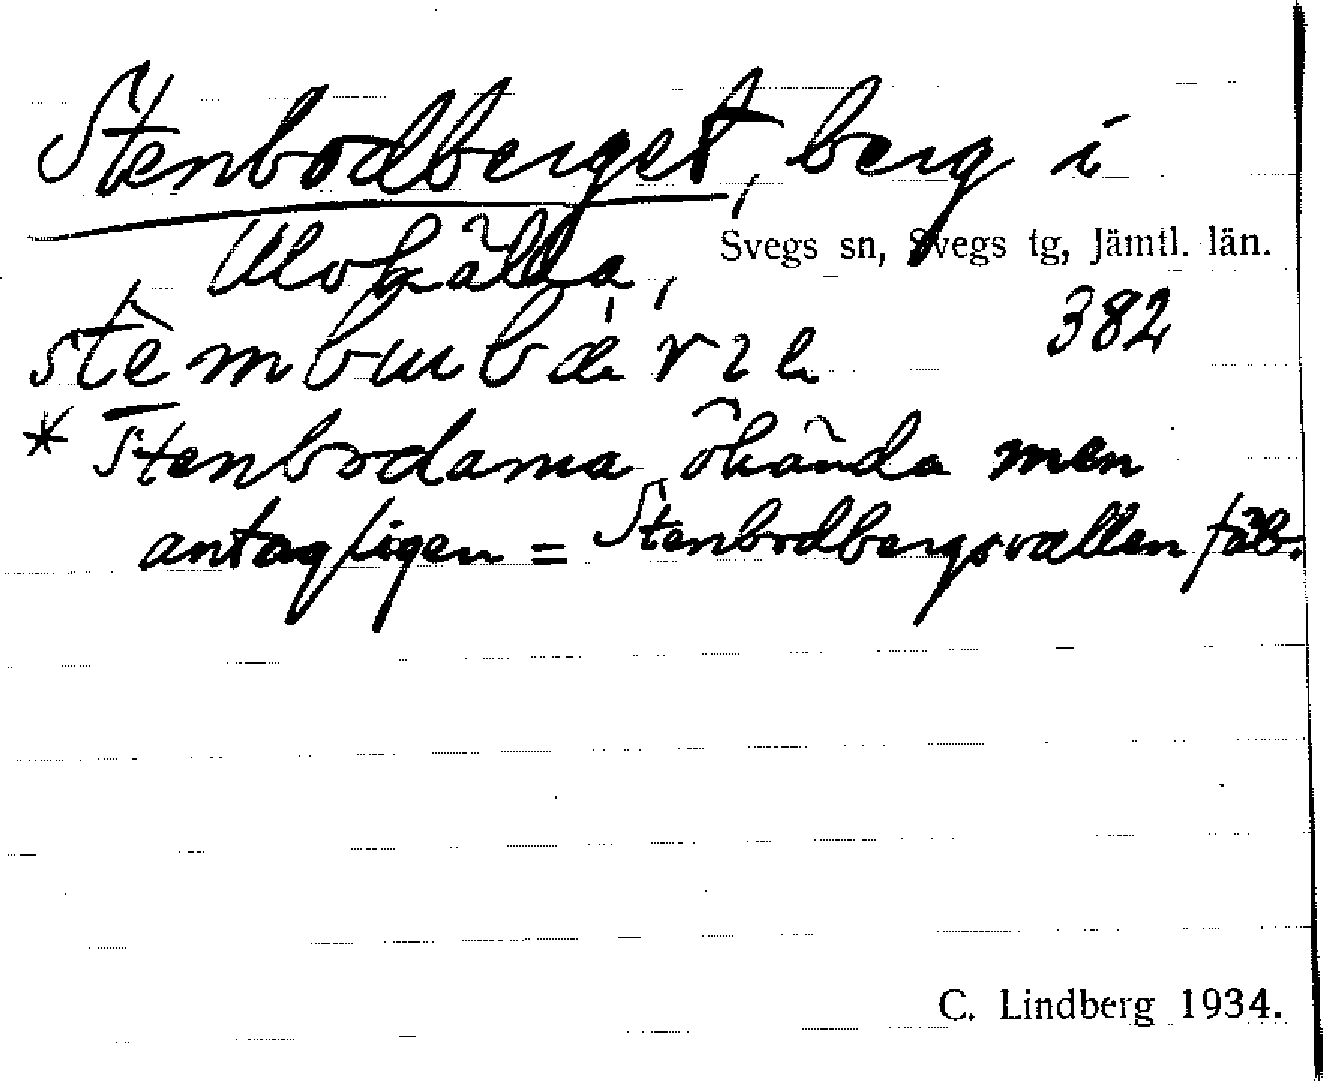 Stenbodberget, berg i
Ulvkälla, Svegs sn, Svegs tg, Jämtl. län.
382
* Stenbodarna okända men
antagligen = Stenbodbergsvallen fäb.
C. Lindberg 1934.